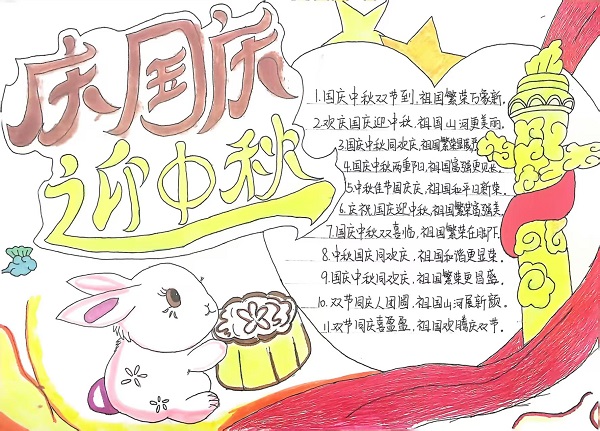 庆国庆
迎中秋
1.国庆中秋双节到,祖国繁荣万象新.
2.欢庆国庆迎中秋,祖国山河更美丽.
3.国庆中秋同欢庆,祖国繁荣
4.国庆中秋两重阳,祖国富强更见长
5.中秋佳节国庆庆,祖国和平日新荣.
6.庆祝国庆迎中秋,祖国繁荣富强美.
7.国庆中秋双喜临,祖国繁荣在眼下.
8.中秋国庆同欢庆.祖国和谐更显荣.
9.国庆中秋同欢庆.祖国繁荣更昌盛.
10.双节同庆人团圆,祖国山河展新颜.
11.双节同庆喜盈盈,祖国欢腾庆双节.